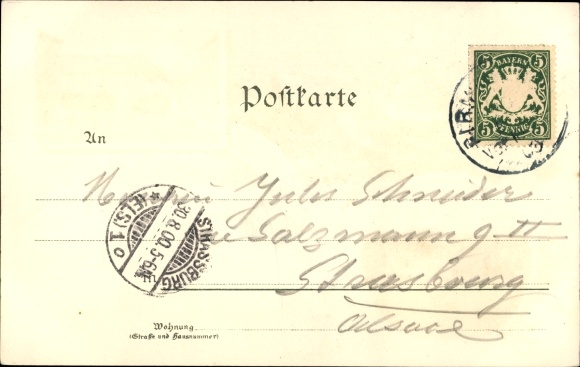 5 BAYERN 5
5 PFENNIG 5
Postkarte
An
Monsieur Jules Schneider
Rue Salzmann 9 II
Strasbourg
Alsace
STRASSBURG
30.8.00.5-6N.
*(ELS.) 1 o
Wohnung
(Straße und Hausnummer)